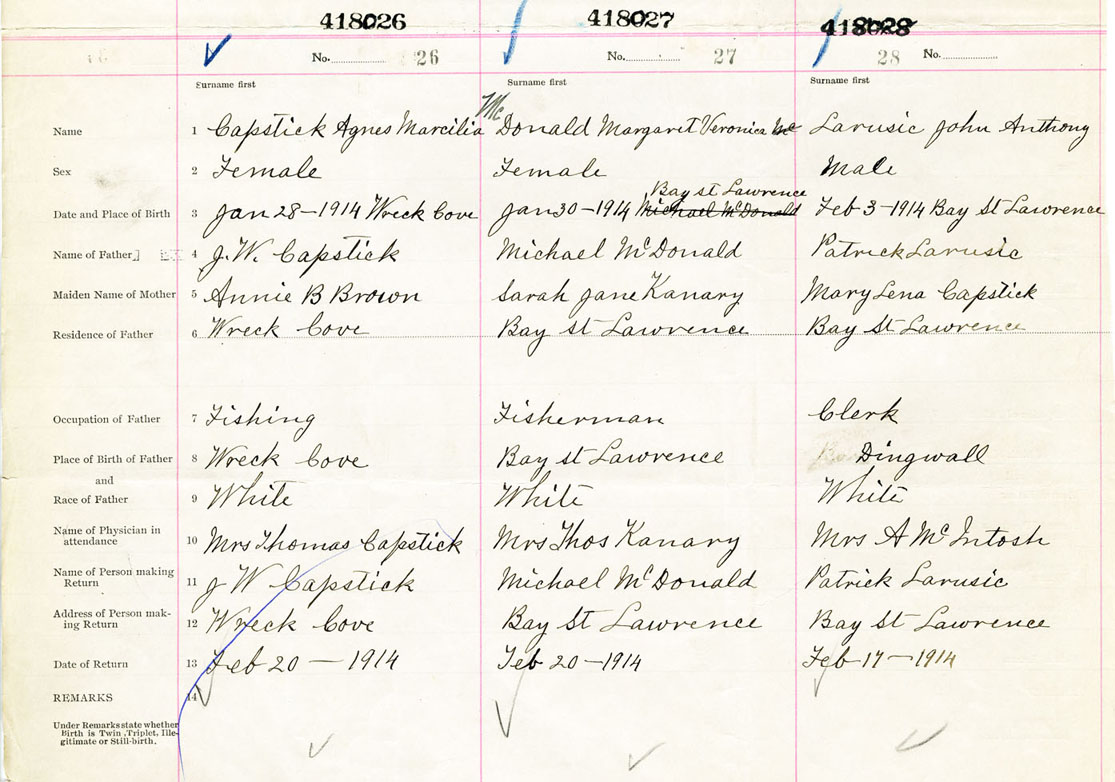 418026 418027 418028
No. 26 No. 27 28 No.
Surname first Surname first Surname first
Mc
Name 1 Capstick Agnes Marcilia Donald Margaret Veronica Mc Larusic John Anthony
Sex 2 Female Female Male
Bay st Lawrence
Date and Place of Birth 3 Jan 28-1914 Wreck Cove Jan 30-1914 Michael McDonald Feb 3-1914 Bay St Lawrence
Name of Father 4 J.W. Capstick Michael McDonald Patrick Larusic
Maiden Name of Mother 5 Annie B Brown Sarah Jane Kanary Mary Lena Capstick
Residence of Father 6 Wreck Cove Bay st Lawrence Bay St Lawrence
Occupation of Father 7 Fishing Fisherman Clerk
Place of Birth of Father 8 Wreck Cove Bay st Lawrence Dingwall
and
Race of Father 9 White White White
Name of Physician in
attendance 10 Mrs Thomas Capstick Mrs Thos Kanary Mrs A McIntosh
Name of Person making
Return 11 J W Capstick Michael McDonald Patrick Larusic
Address of Person mak-
ing Return 12 Wreck Cove Bay St Lawrence Bay St Lawrence
Date of Return 13 Feb 20 - 1914 Feb 20 - 1914 Feb 17 - 1914
REMARKS 14
Under Remarks state whether
Birth is Twin, Triplet, Ille-
gitimate or Still-birth.